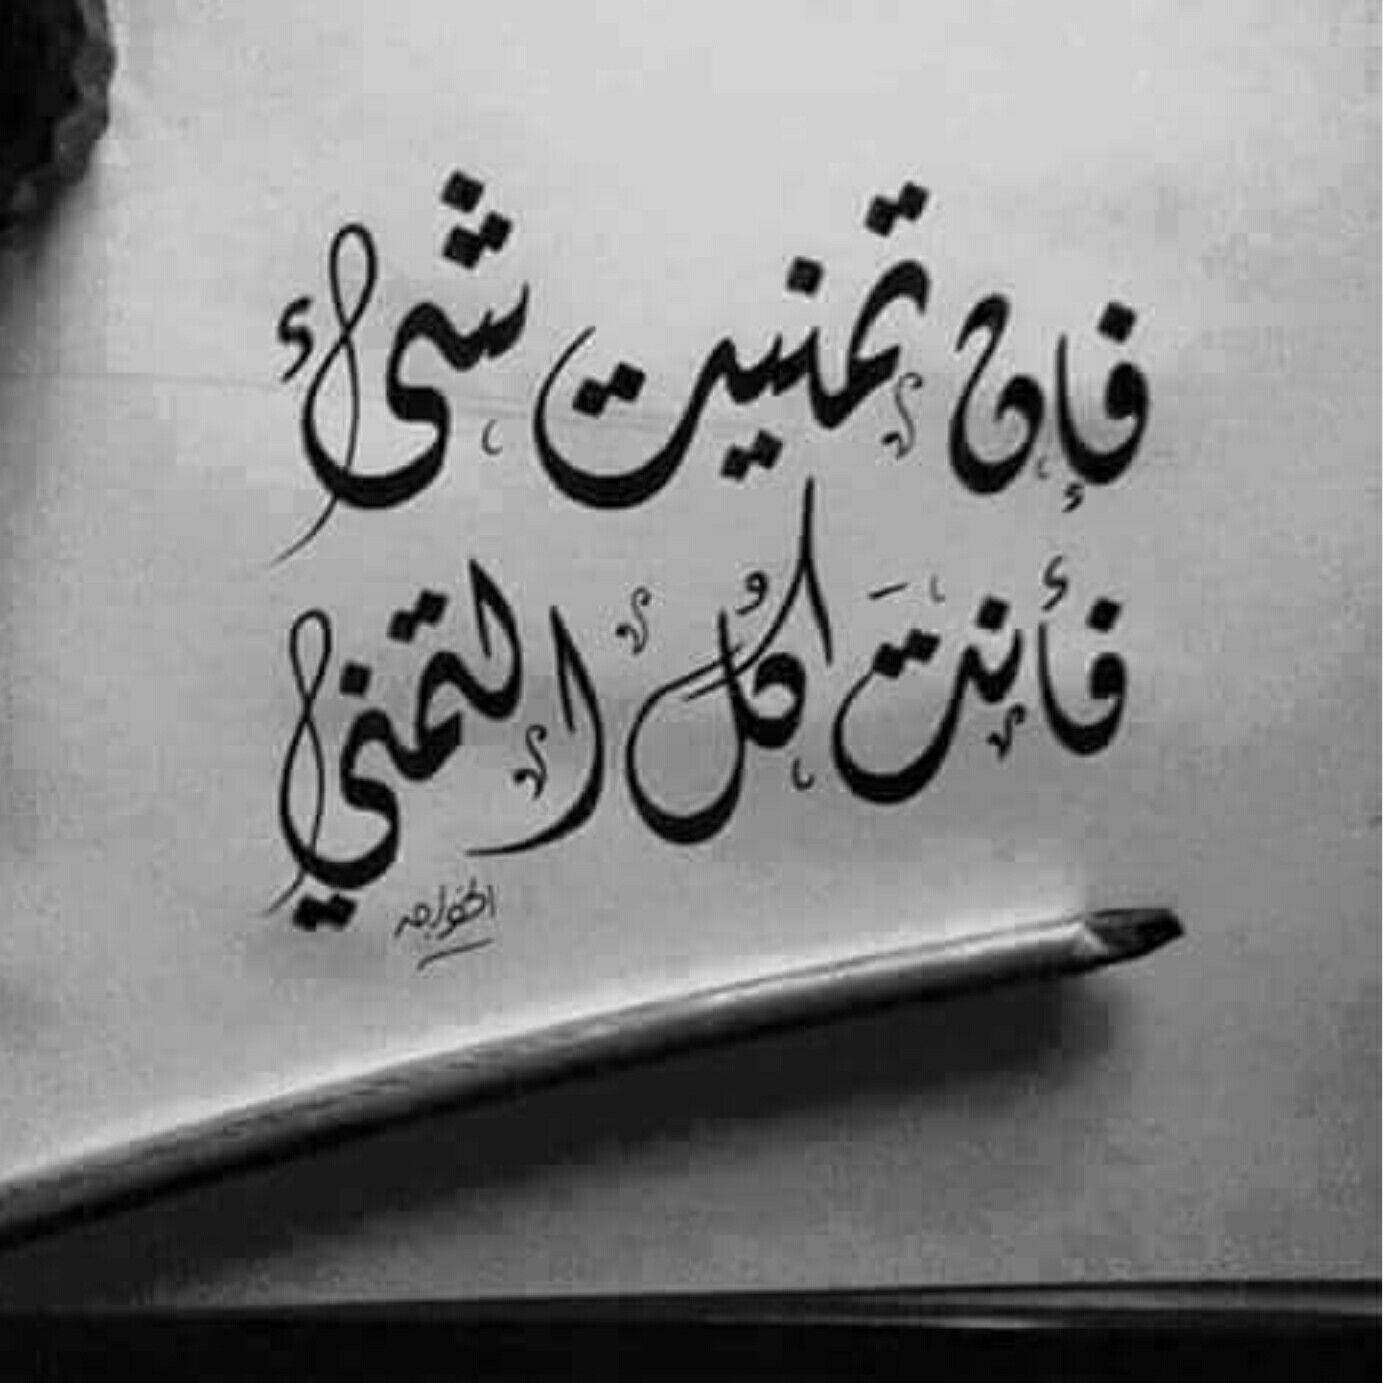 فإن تمنيت شيء
فأنت كُل التمني
الخواجه